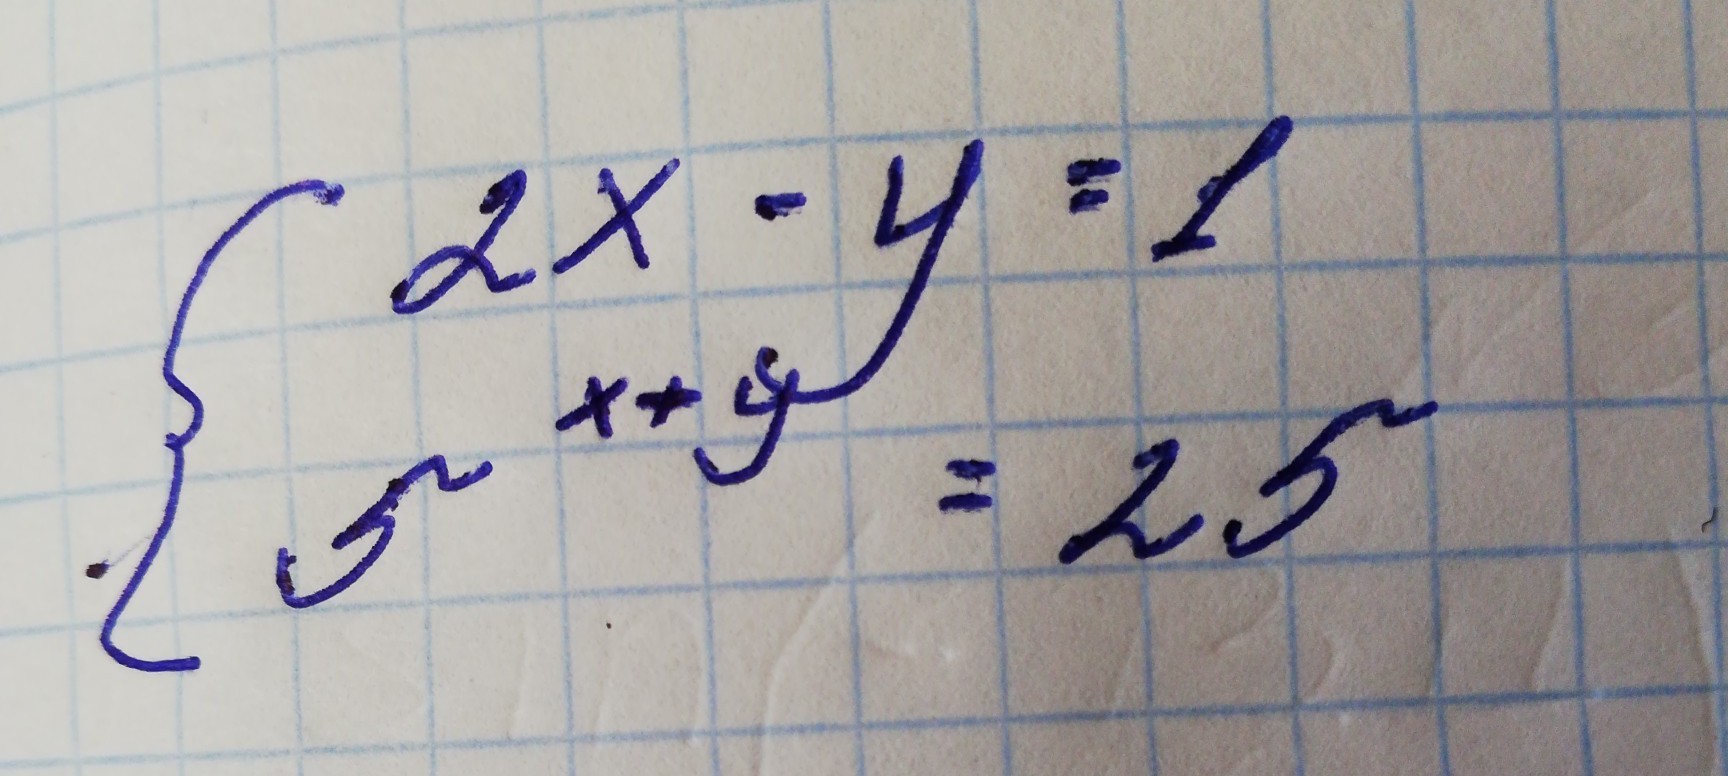 { 2x - y = 1
5^{x+y} = 25